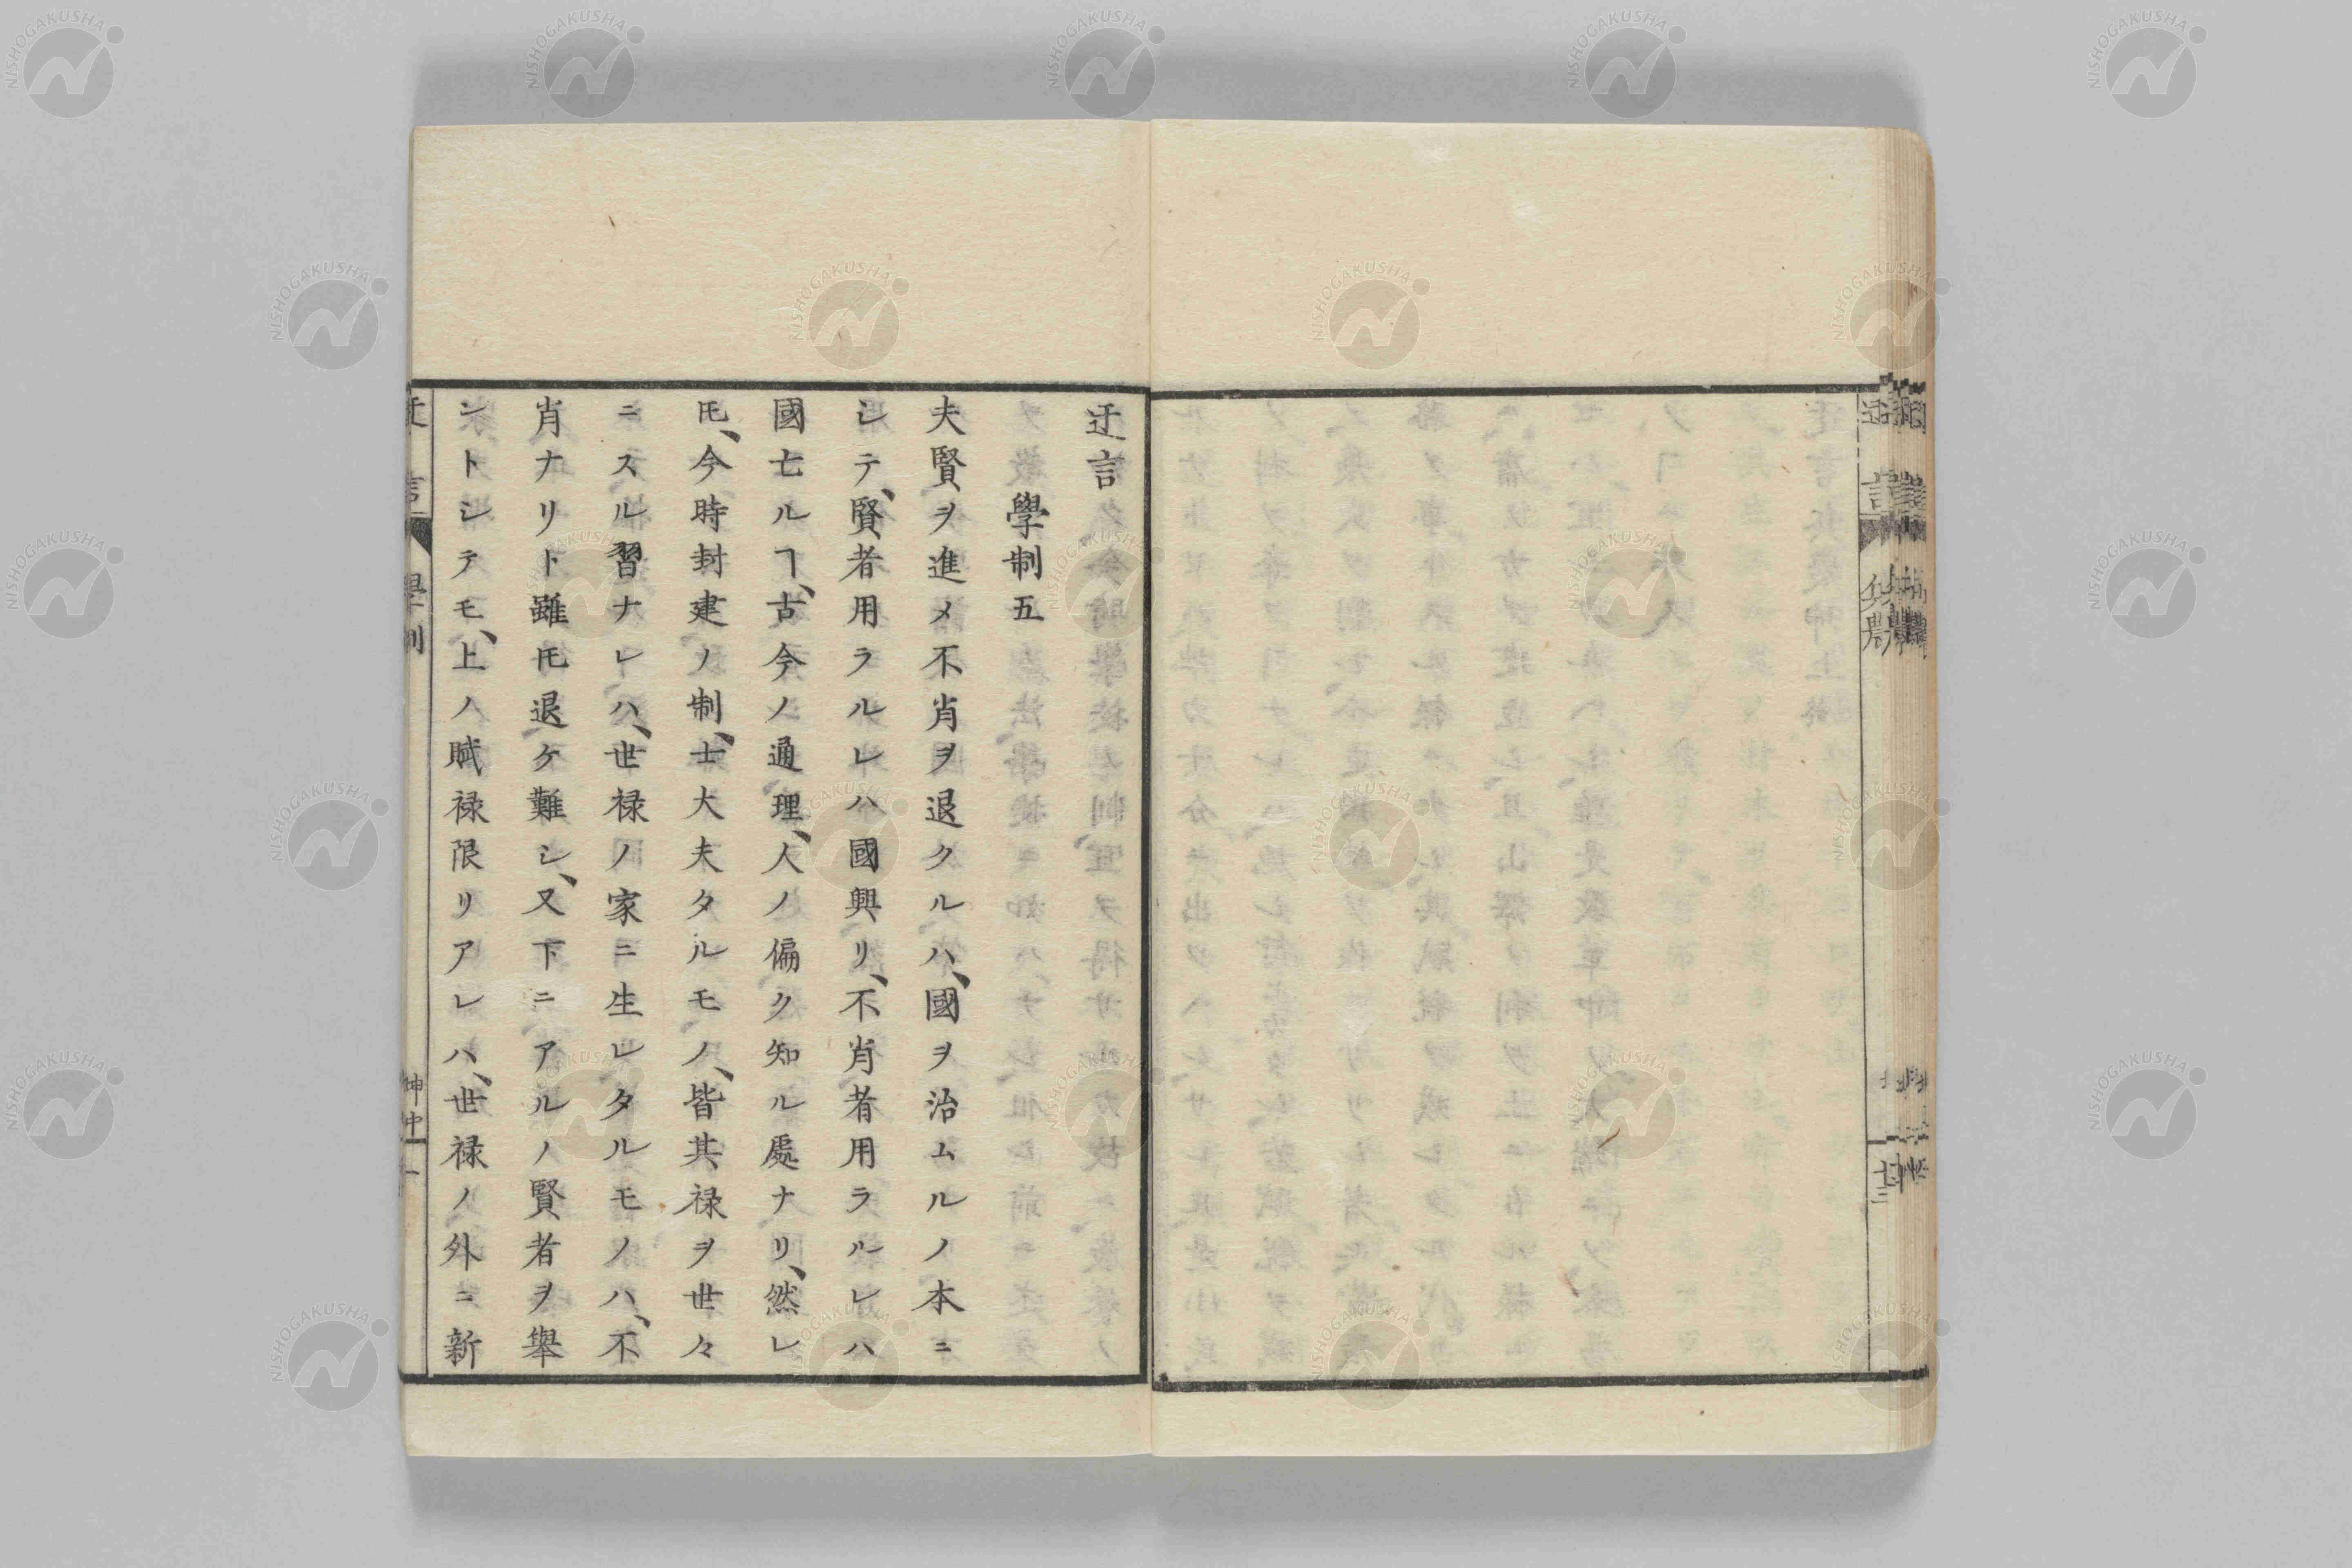 迂言
學制五
夫賢ヲ進メ不肖ヲ退クルハ、國ヲ治ムルノ本ニ
シテ、賢者用ラルレハ國興リ、不肖者用ラルレハ
國亡ルヿ、古今ノ通理、人ノ偏ク知ル處ナリ、然レ
𪜈、今時封建ノ制、士大夫タルモノ、皆其禄ヲ世々
ニスル習ナレハ、世禄ノ家ニ生レタルモノハ、不
肖ナリト雖𪜈退ケ難シ、又下ニアルノ賢者ヲ舉
ントシテモ、上ノ賦禄限リアレハ、世禄ノ外ニ新
迂言 學制 坤中 一
NISHOGAKUSHA